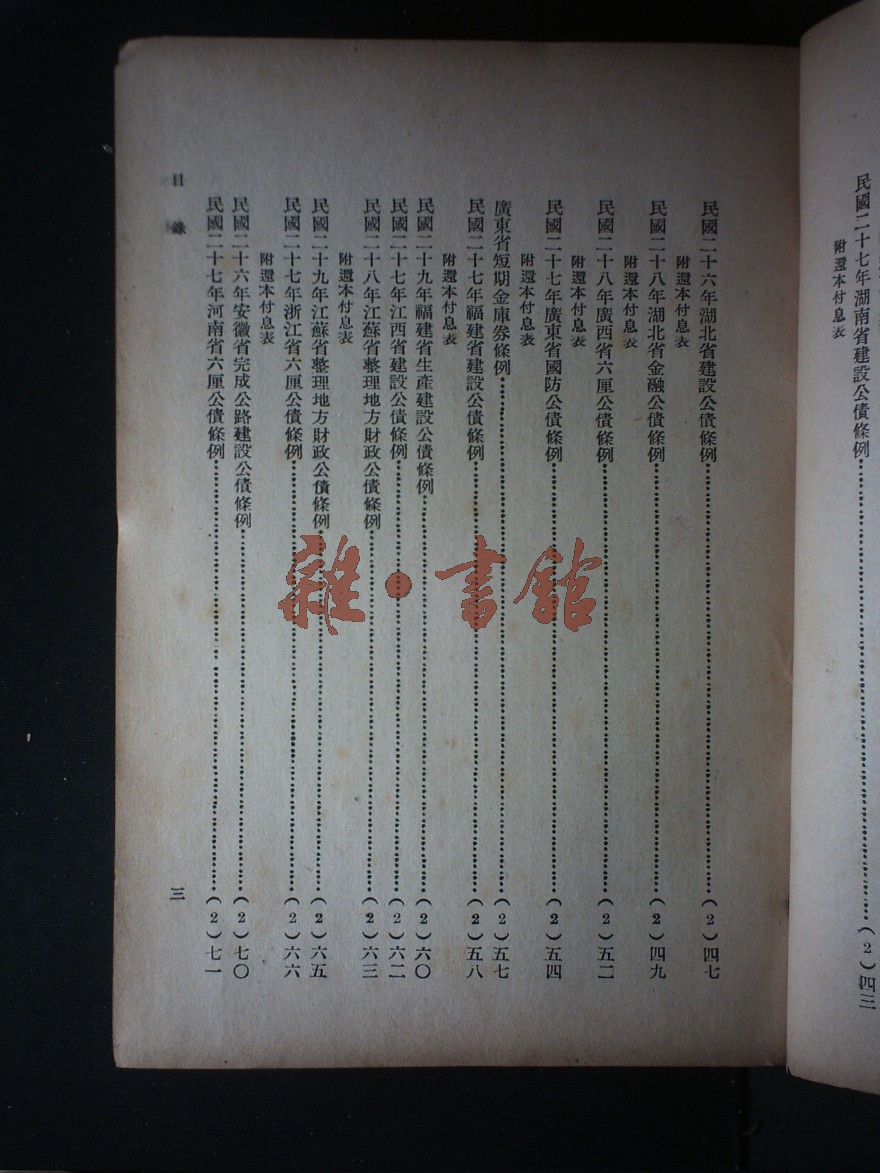 民國二十七年湖南省建設公債條例……(2)四三
附還本付息表
民國二十六年湖北省建設公債條例……(2)四七
附還本付息表
民國二十八年湖北省金融公債條例……(2)四九
附還本付息表
民國二十八年廣西省六厘公債條例……(2)五二
附還本付息表
民國二十七年廣東省國防公債條例……(2)五四
附還本付息表
廣東省短期金庫券條例……(2)五七
民國二十七年福建省建設公債條例……(2)五八
附還本付息表
民國二十九年福建省生產建設公債條例……(2)六〇
民國二十七年江西省建設公債條例……(2)六二
民國二十八年江蘇省整理地方財政公債條例……(2)六三
附還本付息表
民國二十九年江蘇省整理地方財政公債條例……(2)六五
民國二十七年浙江省六厘公債條例……(2)六六
附還本付息表
民國二十六年安徽省完成公路建設公債條例……(2)七〇
民國二十七年河南省六厘公債條例……(2)七一
目錄
三
雜·書館